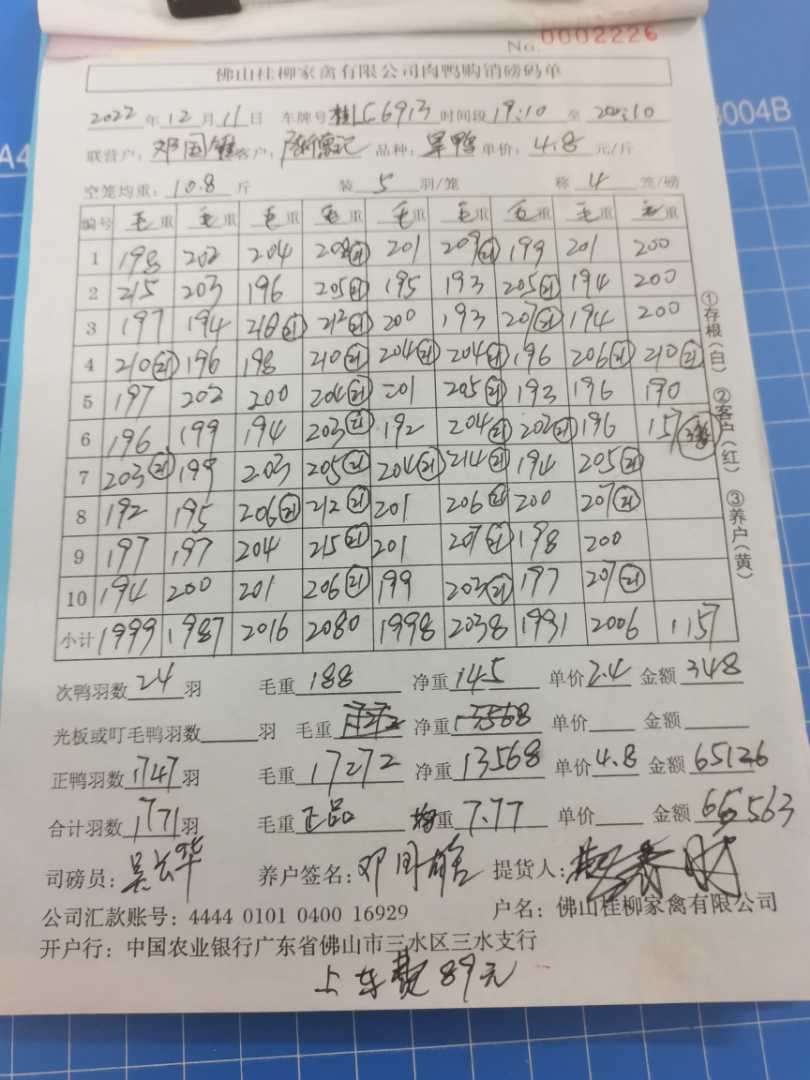 No. 0002226
佛山桂柳家禽有限公司肉鸭购销磅码单
2022 年 12 月 11 日 车牌号 桂C6913 时间段 19:10 至 20:10
联营户: 邓国雄 客户: 记 品种: 旱鸭 单价: 4.8 元/斤
空笼均重: 10.8 斤 装 5 羽/笼 称 4 笼/磅
编号 毛重 毛重 毛重 毛重 毛重 毛重 毛重 毛重 毛重
1 198 202 204 208(21) 201 209(21) 199 201 200
2 215 203 196 205(21) 195 193 205(21) 194 200
3 197 194 210(21) 212(21) 200 193 207(21) 194 200
4 210(21) 196 198 210(21) 204(21) 204(21) 196 206(21) 210(21)
5 197 202 200 204(21) 201 205(21) 193 196 190
6 196 199 194 203(21) 192 204(21) 202(21) 196 157
7 203(21) 199 203 205(21) 204(21) 214(21) 194 205(21)
8 192 195 206(21) 212(21) 201 206(21) 200 207(21)
9 197 197 204 215(21) 201 207(21) 198 200
10 194 200 201 206(21) 199 203(21) 197 207(21)
小计 1999 1987 2016 2080 1998 2038 1991 2006 1157
①存根(白) ②客户(红) ③养户(黄)
次鸭羽数 24 羽 毛重 188 净重 145 单价 2.4 金额 348
光板或叮毛鸭羽数 羽 毛重 净重 13568 单价 金额
正鸭羽数 1747 羽 毛重 17272 净重 13568 单价 4.8 金额 65126
合计羽数 1771 羽 毛重 正品 均重 7.77 单价 金额 65563
司磅员: 吴长华 养户签名: 邓国雄 提货人:
公司汇款账号: 4444 0101 0400 16929 户名: 佛山桂柳家禽有限公司
开户行: 中国农业银行广东省佛山市三水区三水支行
上车费 89元
3004B
A4